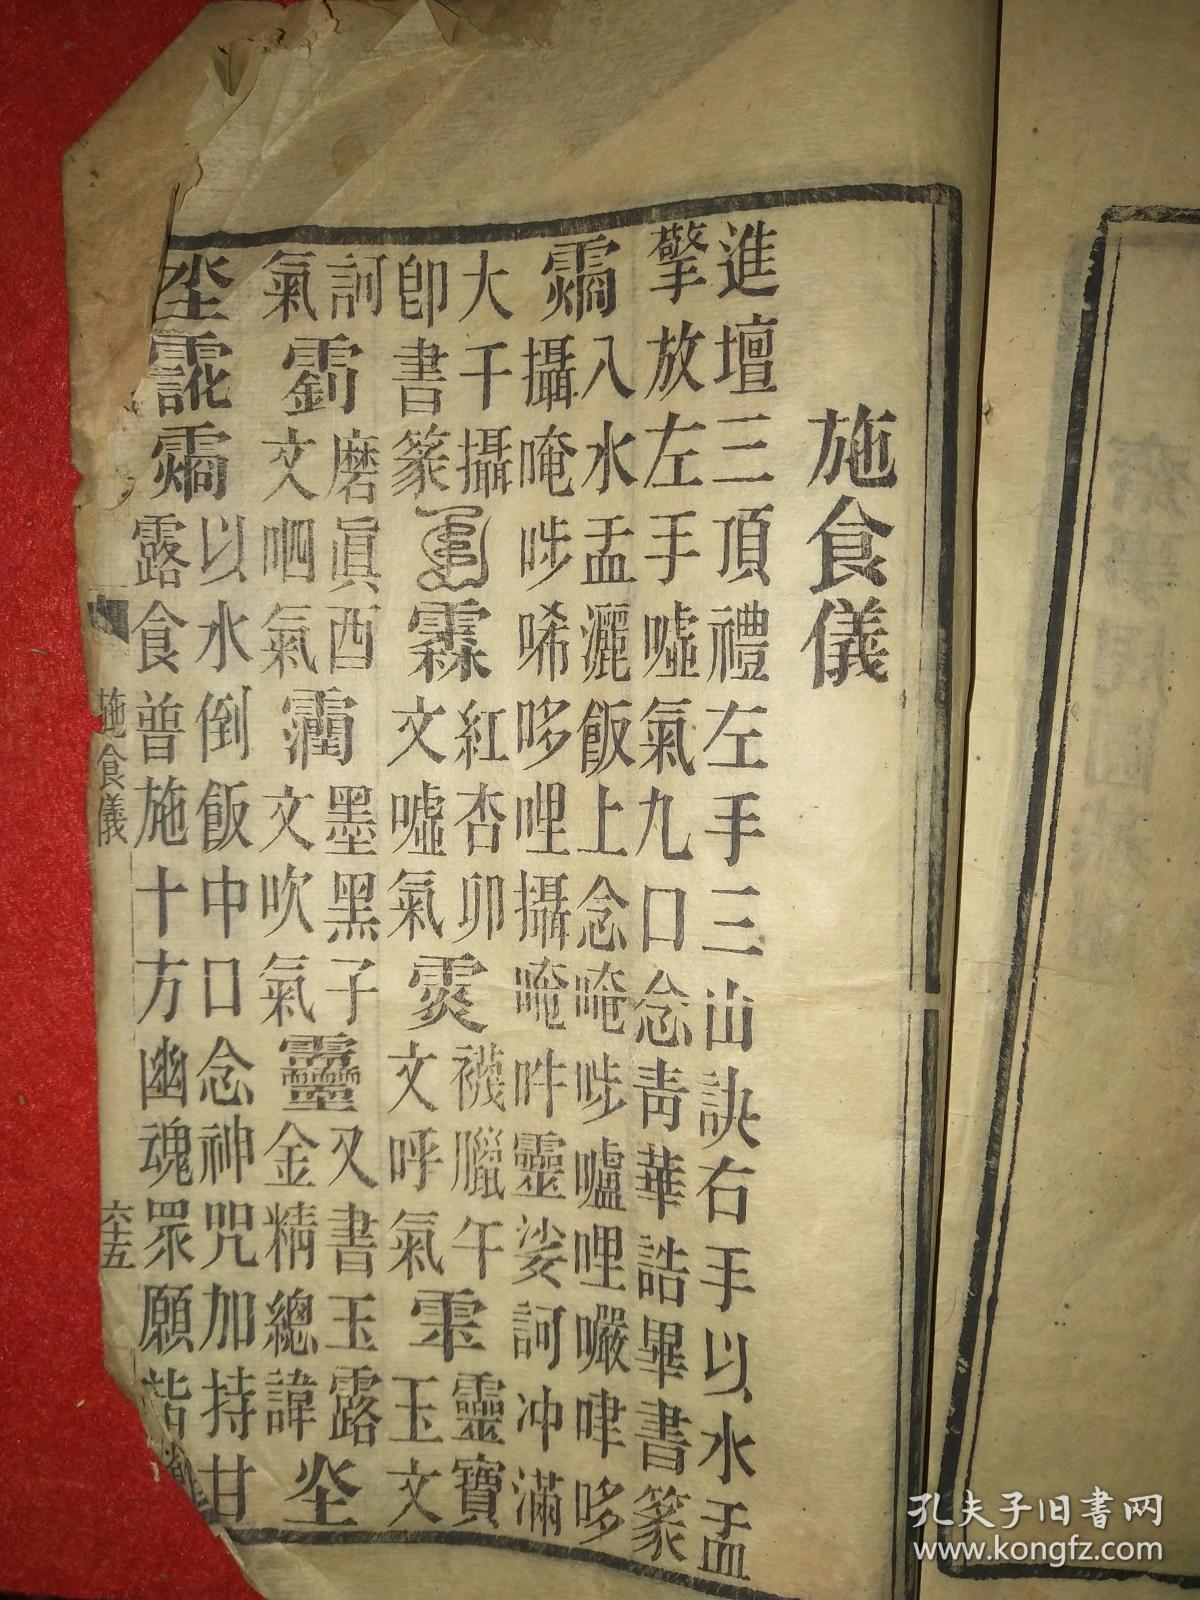 施食儀
進壇三頂禮左手三山訣右手以水盂
擎放左手噓氣九口念靑華誥畢書篆
入水盂灑飯上念唵㖿嚧哩嚩哆
攝唵㖿唏哆哩攝唵吽靈娑訶沖滿
大千攝紅杏卯襪臘午靈寶
卽書篆霖文噓氣文呼氣玉文
訶磨眞酉墨黑子又書玉露
氣文呬氣文吹氣金精總諱
以水倒飯中口念神咒加持甘
露食普施十方幽魂眾願皆
施食儀
六十五
孔夫子旧書网
www.kongfz.com